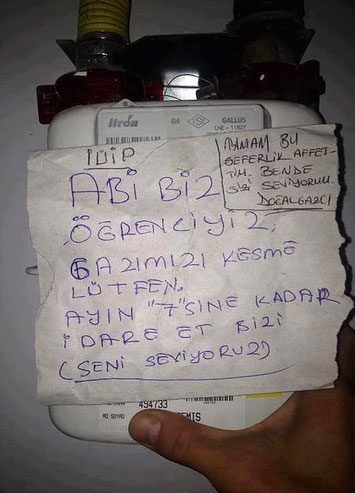 Itrón
G4
GALLUS
LNE-11827
İGDİP
ABİ BİZ
ÖĞRENCİYİZ
GAZIMIZI KESME
LÜTFEN.
AYIN "7"SİNE KADAR
İDARE ET BİZİ
(SENİ SEVİYORUZ)
TAMAM BU
SEFERLİK AFFET-
TİM. BENDE
SİZİ SEVİYORUM.
DOĞALGAZCI
494733
AD SOYAD